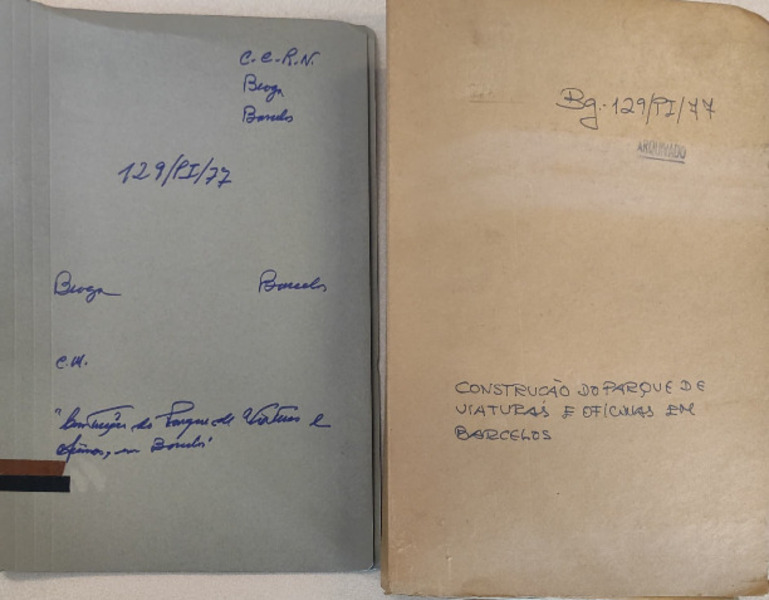 C.C.R.N.
Braga
Barcelos
129/PI/77
Braga Barcelos
C.M.
"Construção do Parque de Viaturas e
Oficinas, em Barcelos"
Bg. 129/PI/77
ARQUIVADO
CONSTRUCÃO DO PARQUE DE
VIATURAS E OFICINAS EM
BARCELOS